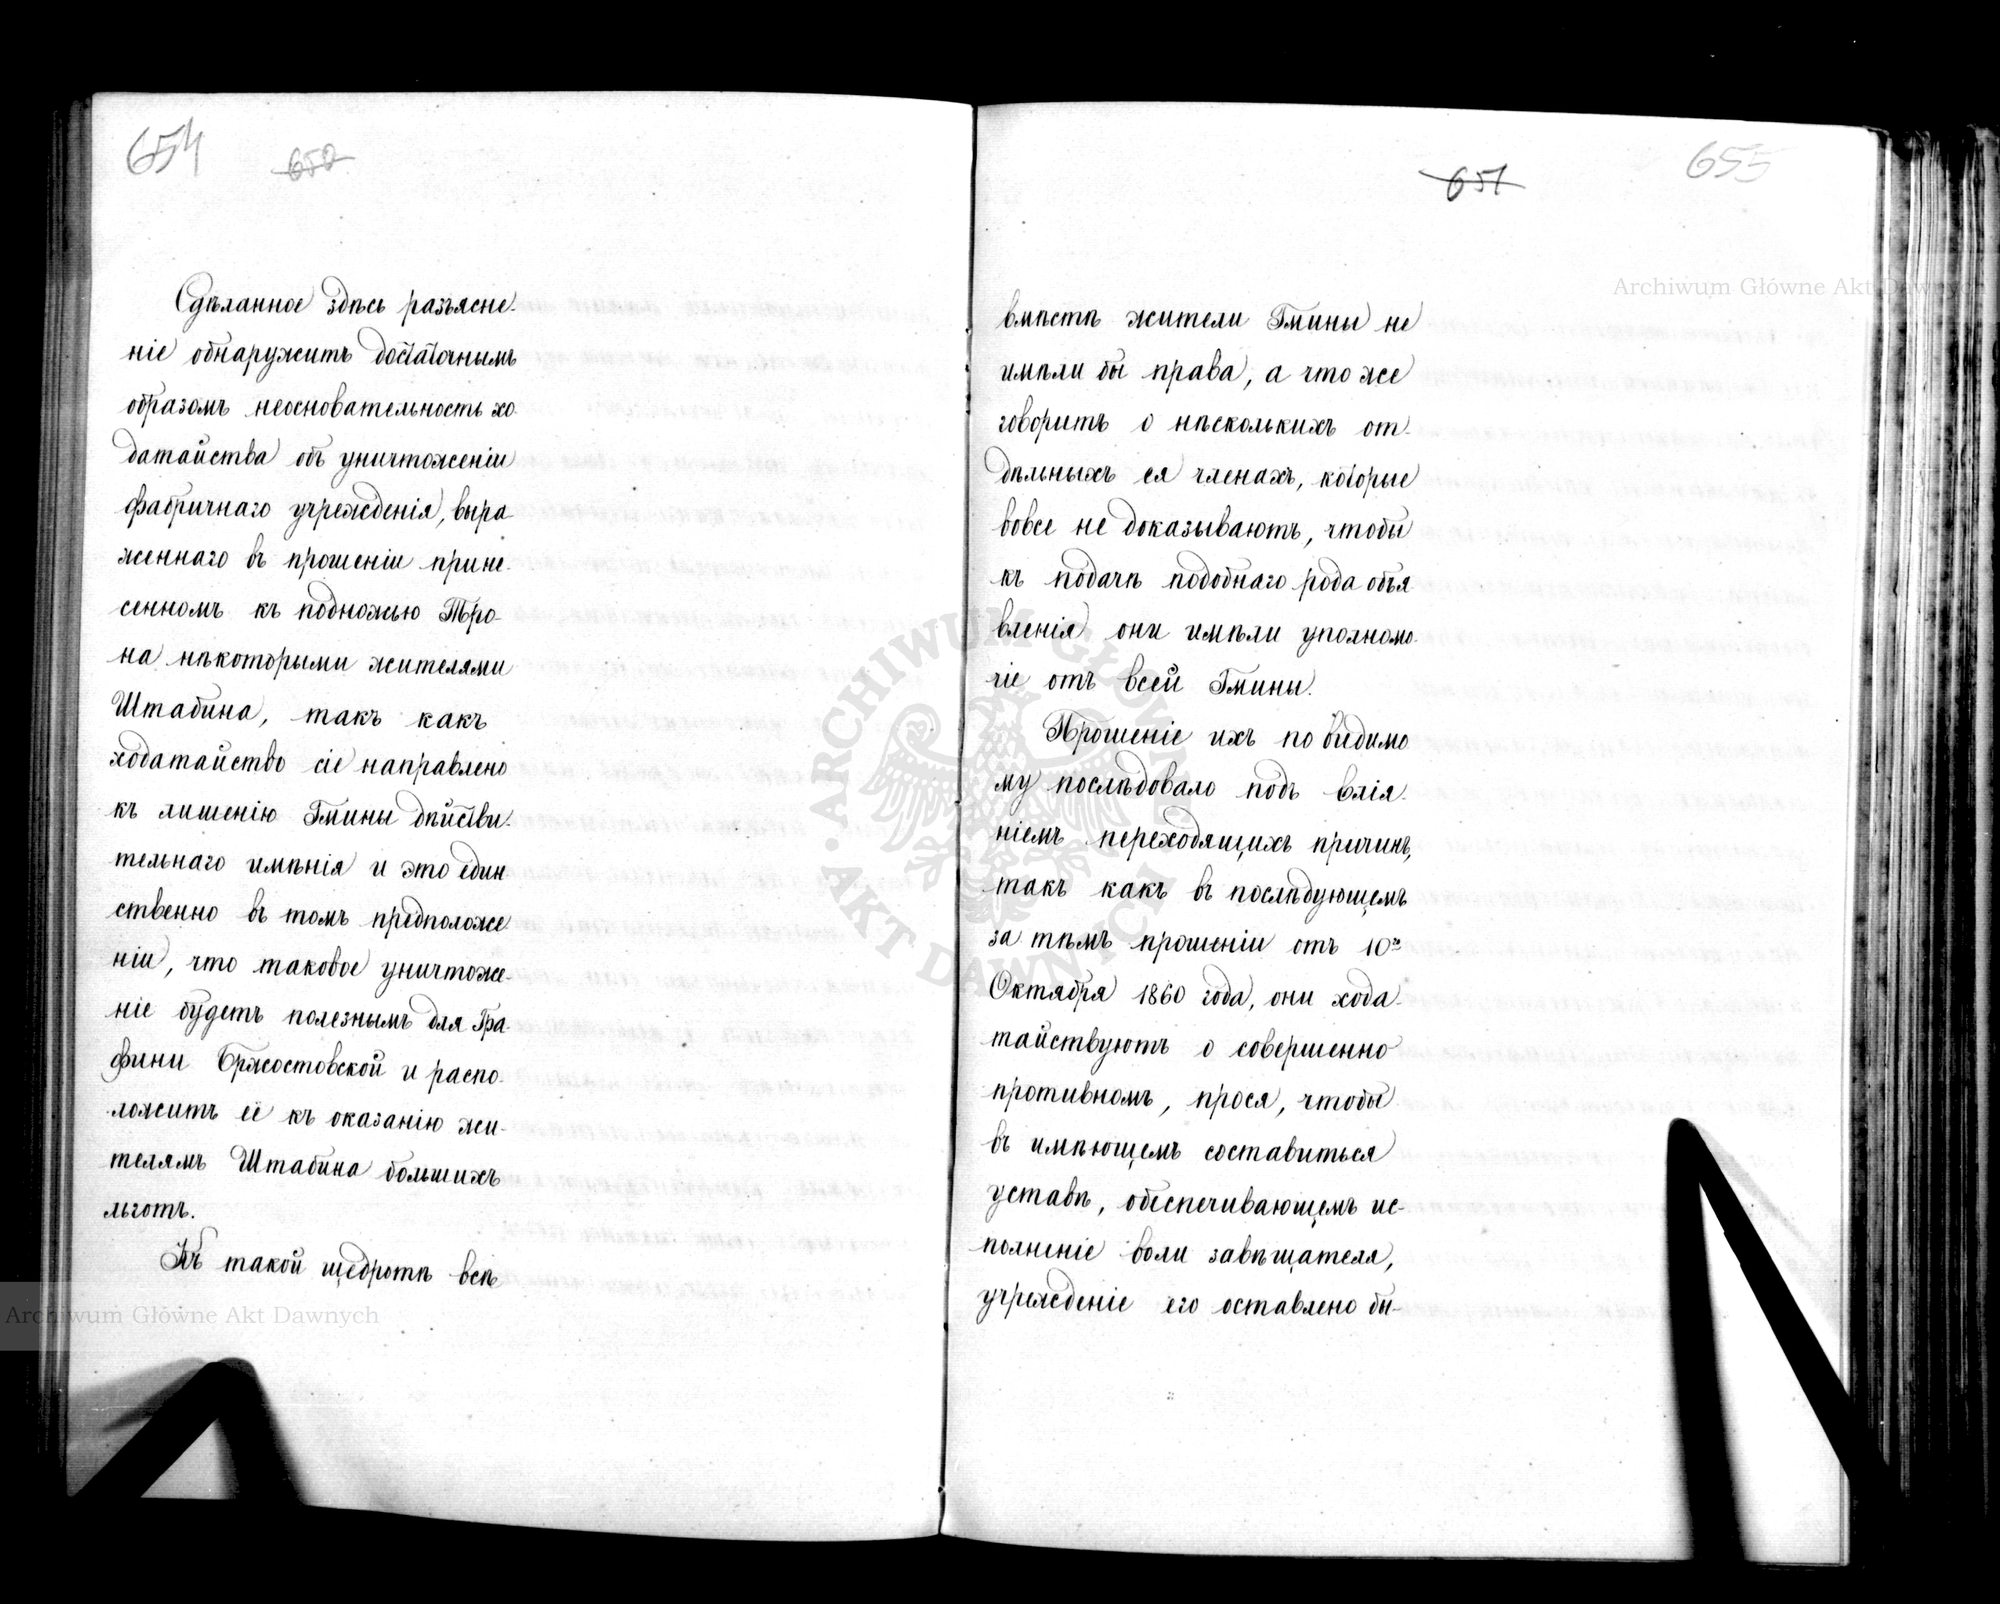 654 650
Сдѣланное здѣсь разъясне-
ніе обнаружитъ достаточнымъ
образомъ неосновательность хо-
датайства объ уничтоженіи
фабричнаго учрежденія, выра-
женнаго въ прошеніи прине-
сенномъ къ подножью Тро-
на нѣкоторыми жителями
Штабина, такъ какъ
ходатайство сіе направлено
къ лишенію Гмины дѣйстви-
тельнаго имѣнія и это един-
ственно въ томъ предположе-
ніи, что таковое уничтоже-
ніе будетъ полезнымъ для Гра-
фини Бржостовской и распо-
ложитъ её къ оказанію жи-
телямъ Штабина большихъ
льготъ.
Къ такой щедротѣ всѣ
Archiwum Główne Akt Dawnych
651 655
Archiwum Główne Akt Dawnych
вмѣстѣ жители Гмины не
имѣли бы права, а что же
говорить о нѣсколькихъ от-
дѣльныхъ ея членахъ, которые
вовсе не доказываютъ, чтобы
къ подачѣ подобнаго рода объя
вленія они имѣли уполномо-
чіе отъ всей Гмины.
Прошеніе ихъ по видимо
му послѣдовало подъ влія-
ніемъ переходящихъ причинъ,
такъ какъ въ послѣдующемъ
за тѣмъ прошеніи отъ 10го
Октября 1860 года, они хода-
тайствуютъ о совершенно
противномъ, прося, чтобы
въ имѣющемъ составиться
уставѣ, обеспечивающемъ ис-
полненіе воли завѣщателя,
учрежденіе его оставлено бы-
ARCHIWUM GŁÓWNE AKT DAWNYCH